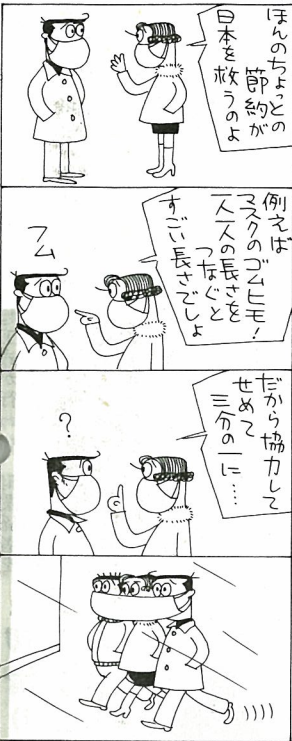 ほんのちょっとの
節約が
日本を救うのよ
例えば
マスクのゴムヒモ!
一人一人の長さを
つなぐと
すごい長さでしょ
フム
?
だから協力して
せめて
三分の一に……